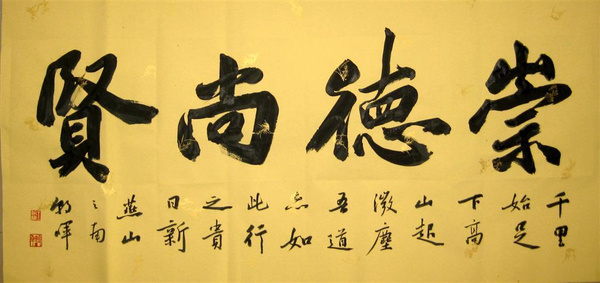 崇德尚賢
千里
始足
下高
山起
微塵
吾道
亦如
此行
之貴
日新
燕山
之南
暉